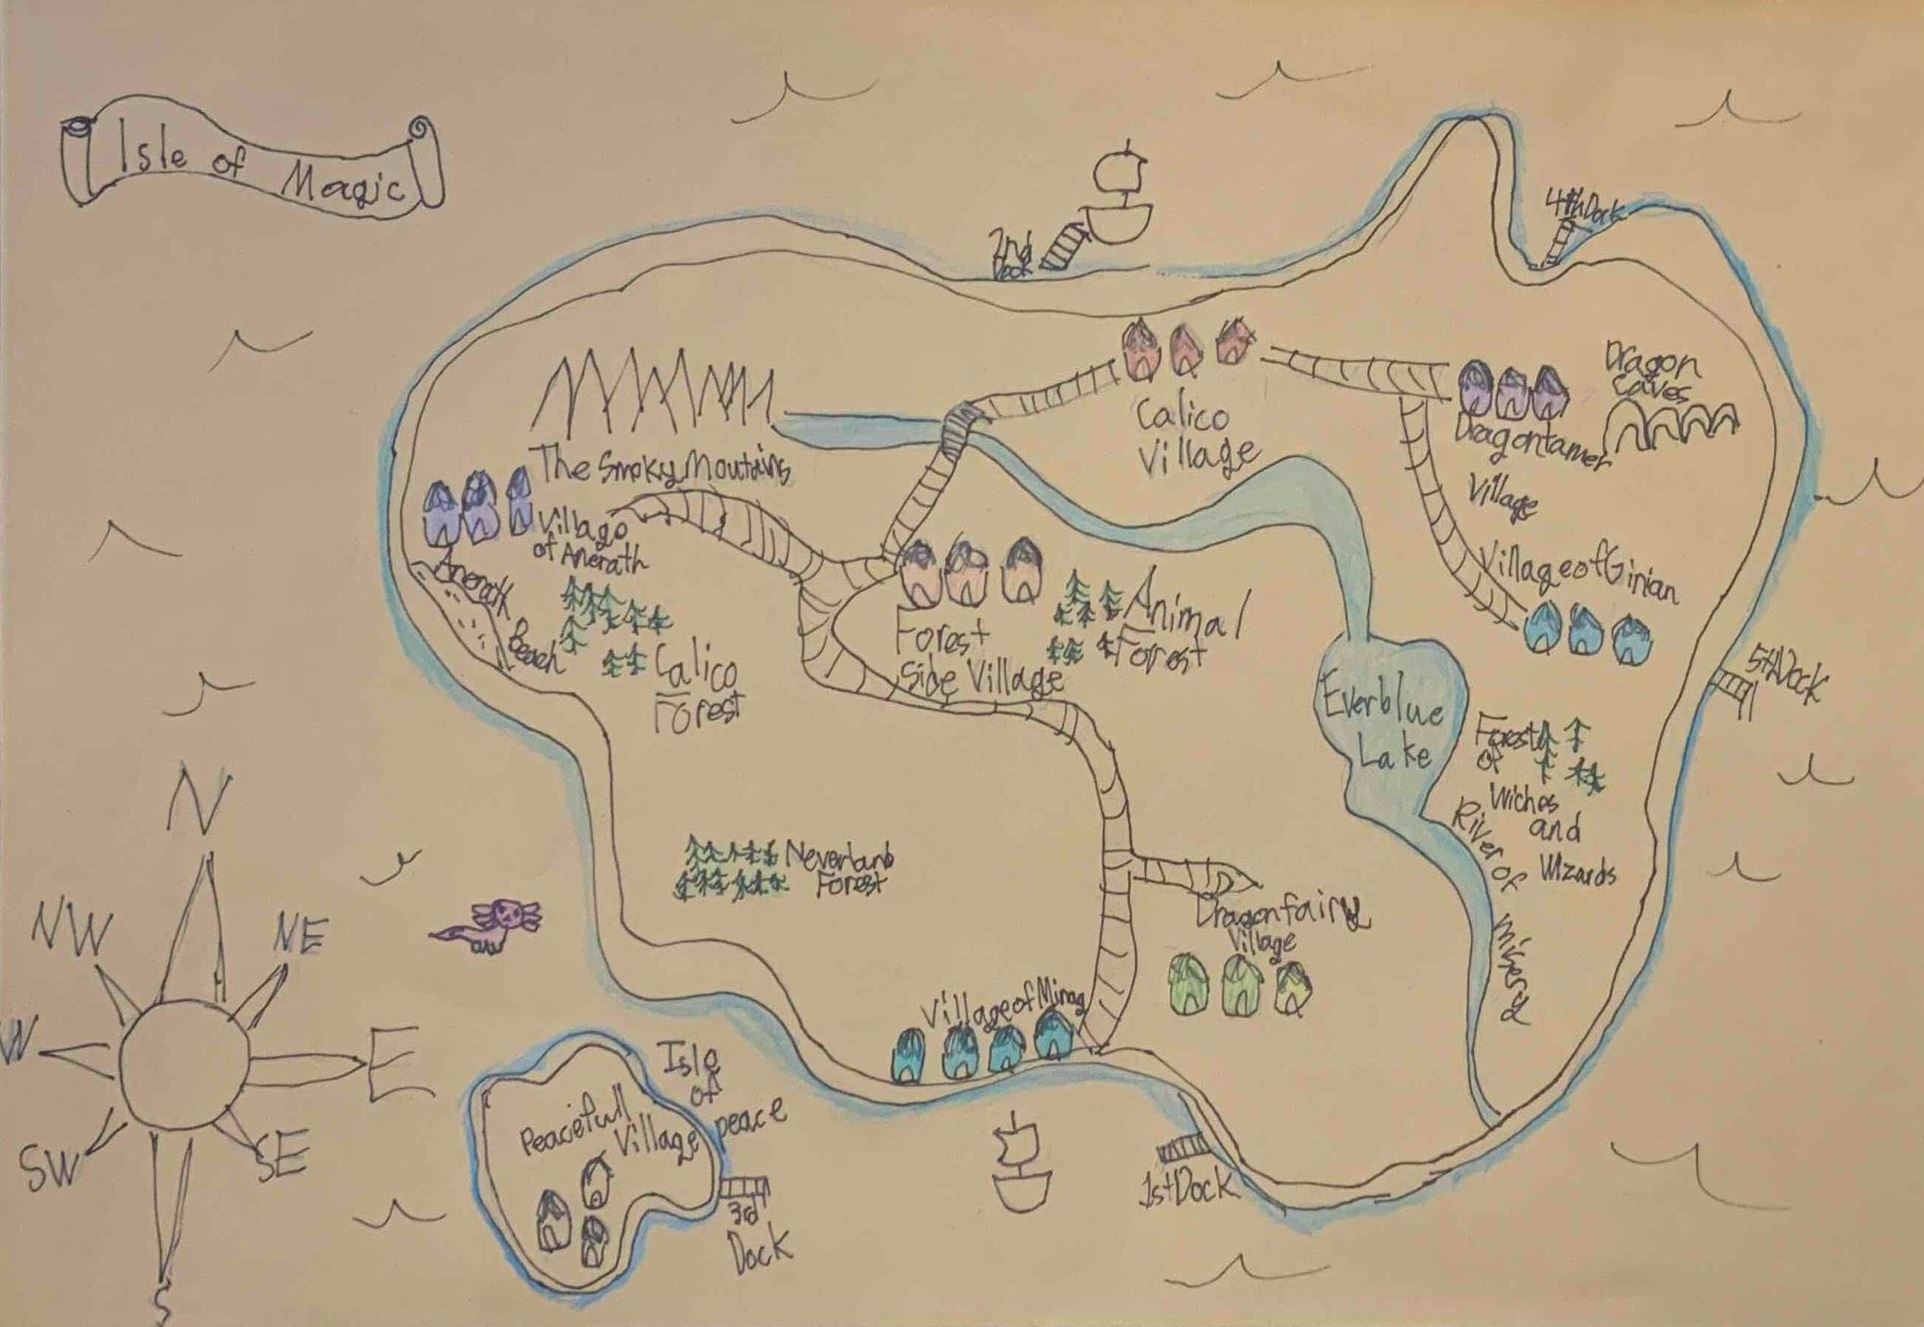 Isle of Magic
2nd
Dock
4th Dock
Dragon
Caves
Calico
Village
Dragontamer
Village
The Smoky Moutains
Village
of Anerath
Anerath
Beach
Calico
Forest
Forest
Side Village
Animal
Forest
Village of Ginian
5th Dock
Everblue
Lake
Forest
of
Wiches
and
Wizards
River of
Misery
Neverland
Forest
Dragonfairy
Village
Village of Mirag
1st Dock
Isle
of
peace
Peacefull
Village
3rd
Dock
N
NW
NE
W
E
SW
SE
S